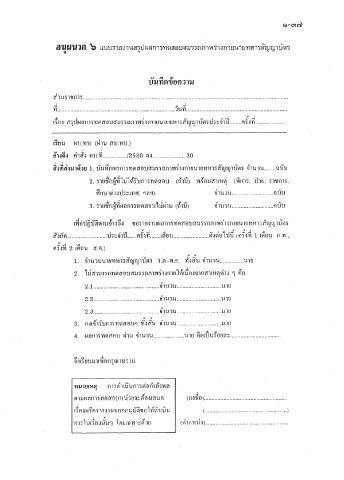 ๑-๓๗
อนุผนวก ๖ แบบรายงานสรุปผลการทดสอบสมรรถภาพร่างกายนายทหารสัญญาบัตร
บันทึกข้อความ
ส่วนราชการ
ที่ วันที่
เรื่อง สรุปผลการทดสอบสมรรถภาพร่างกายนายทหารสัญญาบัตรประจำปี ครั้งที่
เรียน ผบ.ทบ. (ผ่าน
อ้างถึง คำสั่ง ทบ.ที่ /2530 ลง 30
สิ่งที่ส่งมาด้วย 1. บันทึกผลการทดสอบสมรรถภาพร่างกายนายทหารสัญญาบัตร จำนวน ฉบับ
2. รายชื่อผู้ที่ไม่ได้รับการทดสอบ (ถ้ามี) พร้อมสาเหตุ (พิการ, ป่วย, ราชการ,
ศึกษาต่างประเทศ, ฯลฯ) จำนวน ฉบับ
3. รายชื่อผู้ที่ผลการทดสอบไม่ผ่าน (ถ้ามี) จำนวน ฉบับ
เพื่อปฏิบัติตามอ้างถึง ขอรายงานผลการทดสอบสมรรถภาพร่างกายนายทหารสัญญาบัตร
สังกัด ประจำปี ครั้งที่ เดือน ดังต่อไปนี้ (ครั้งที่ 1 เดือน ก.พ.,
ครั้งที่ 2 เดือน ส.ค.)
1. จำนวนนายทหารสัญญาบัตร ร.ต.-พ.อ. ทั้งสิ้น จำนวน นาย
2. ไม่สามารถทดสอบสมรรถภาพร่างกายได้เนื่องจากสาเหตุต่าง ๆ คือ
2.1 จำนวน นาย
2.2 จำนวน นาย
2.3 จำนวน นาย
3. คงเข้ารับการทดสอบฯ ทั้งสิ้น จำนวน นาย
4. ผลการทดสอบ ผ่าน จำนวน นาย คิดเป็นร้อยละ
จึงเรียนมาเพื่อกรุณาทราบ
หมายเหตุ การดำเนินการต่อกำลังพล
ตามผลการทดสอบหน่วยจะต้องเสนอ
เรื่องหรือรายงานขออนุมัติขอให้ดำเนิน
การในเรื่องนั้นๆ โดยเฉพาะด้วย
(ลงชื่อ)
( )
(ตำแหน่ง)